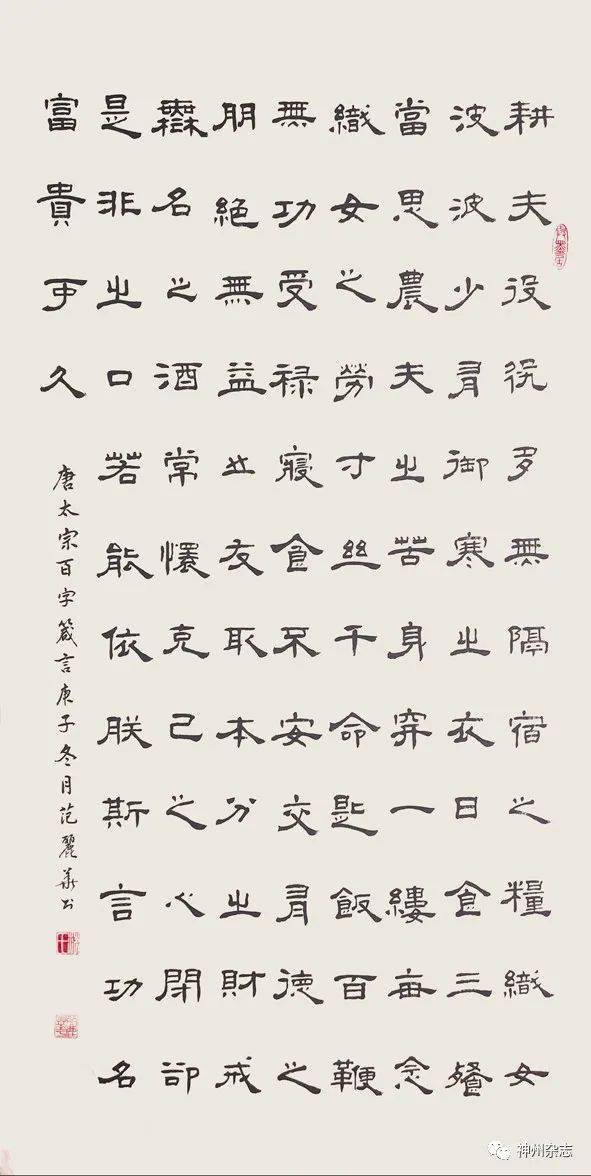 耕夫役役多無隔宿之糧織女
波波少有御寒之衣日食三餐
當思農夫之苦身穿一縷每念
織女之勞寸絲千命匙飯百鞭
無功受禄寢食不安交有德之
朋絕無益之友取本分之財戒
無名之酒常懷克己之心閉卻
是非之口若能依朕斯言功名
富貴可久
唐太宗百字箴言庚子冬月范麗華书
神州杂志